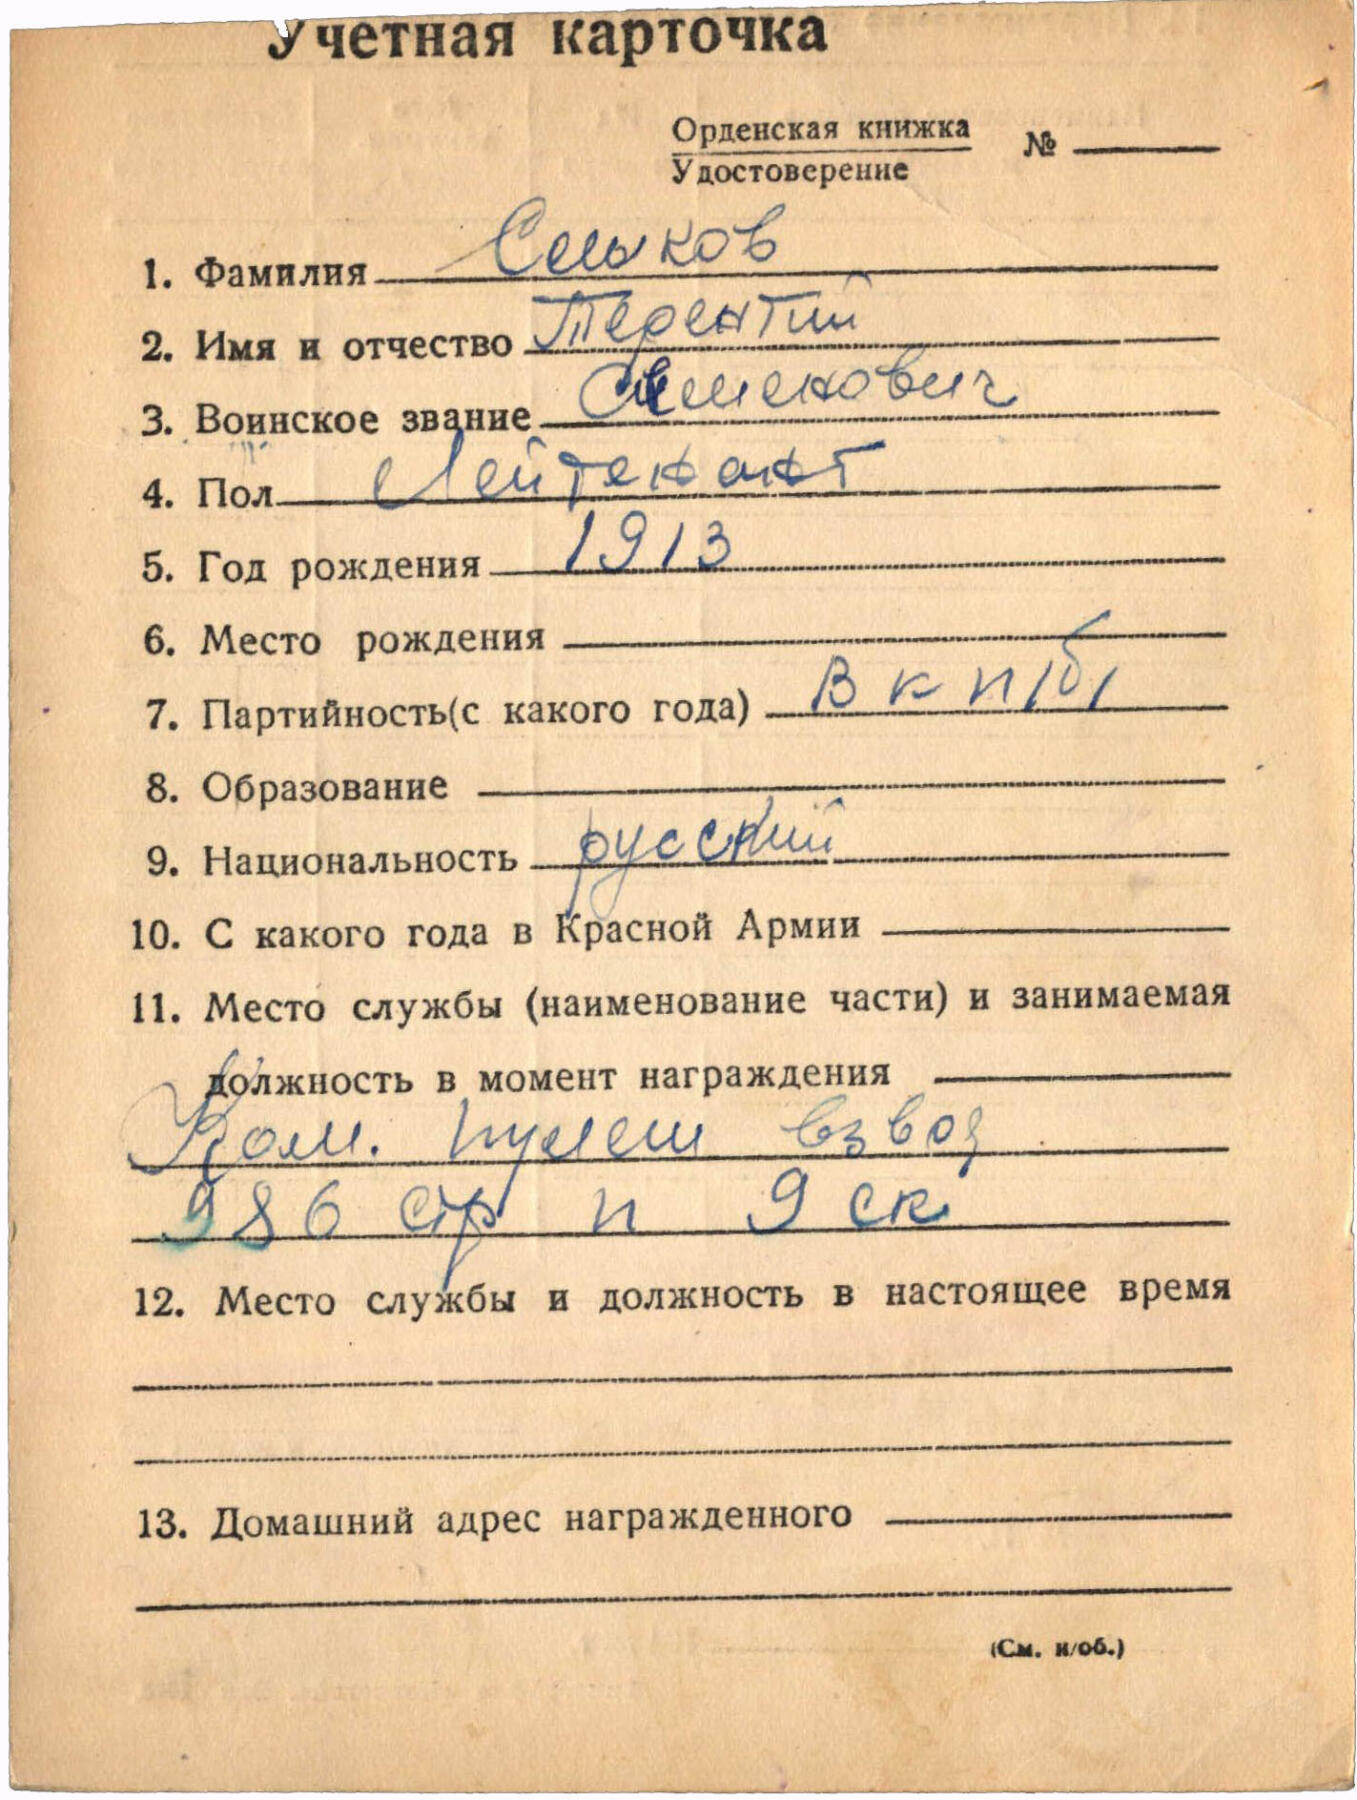 Учетная карточка
Орденская книжка № 
Удостоверение
1. Фамилия
2. Имя и отчество Терентий
3. Воинское звание Семенович
4. Пол Лейтенант
5. Год рождения 1913
6. Место рождения
7. Партийность(с какого года) ВКП/б/
8. Образование
9. Национальность русский
10. С какого года в Красной Армии
11. Место службы (наименование части) и занимаемая
должность в момент награждения
Ком. пулем взвод
986 стр п 9 ск
12. Место службы и должность в настоящее время
13. Домашний адрес награжденного
(См. н/об.)